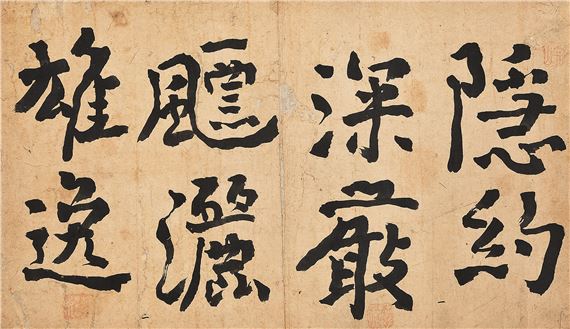 隱約
深嚴
飄灑
雄逸